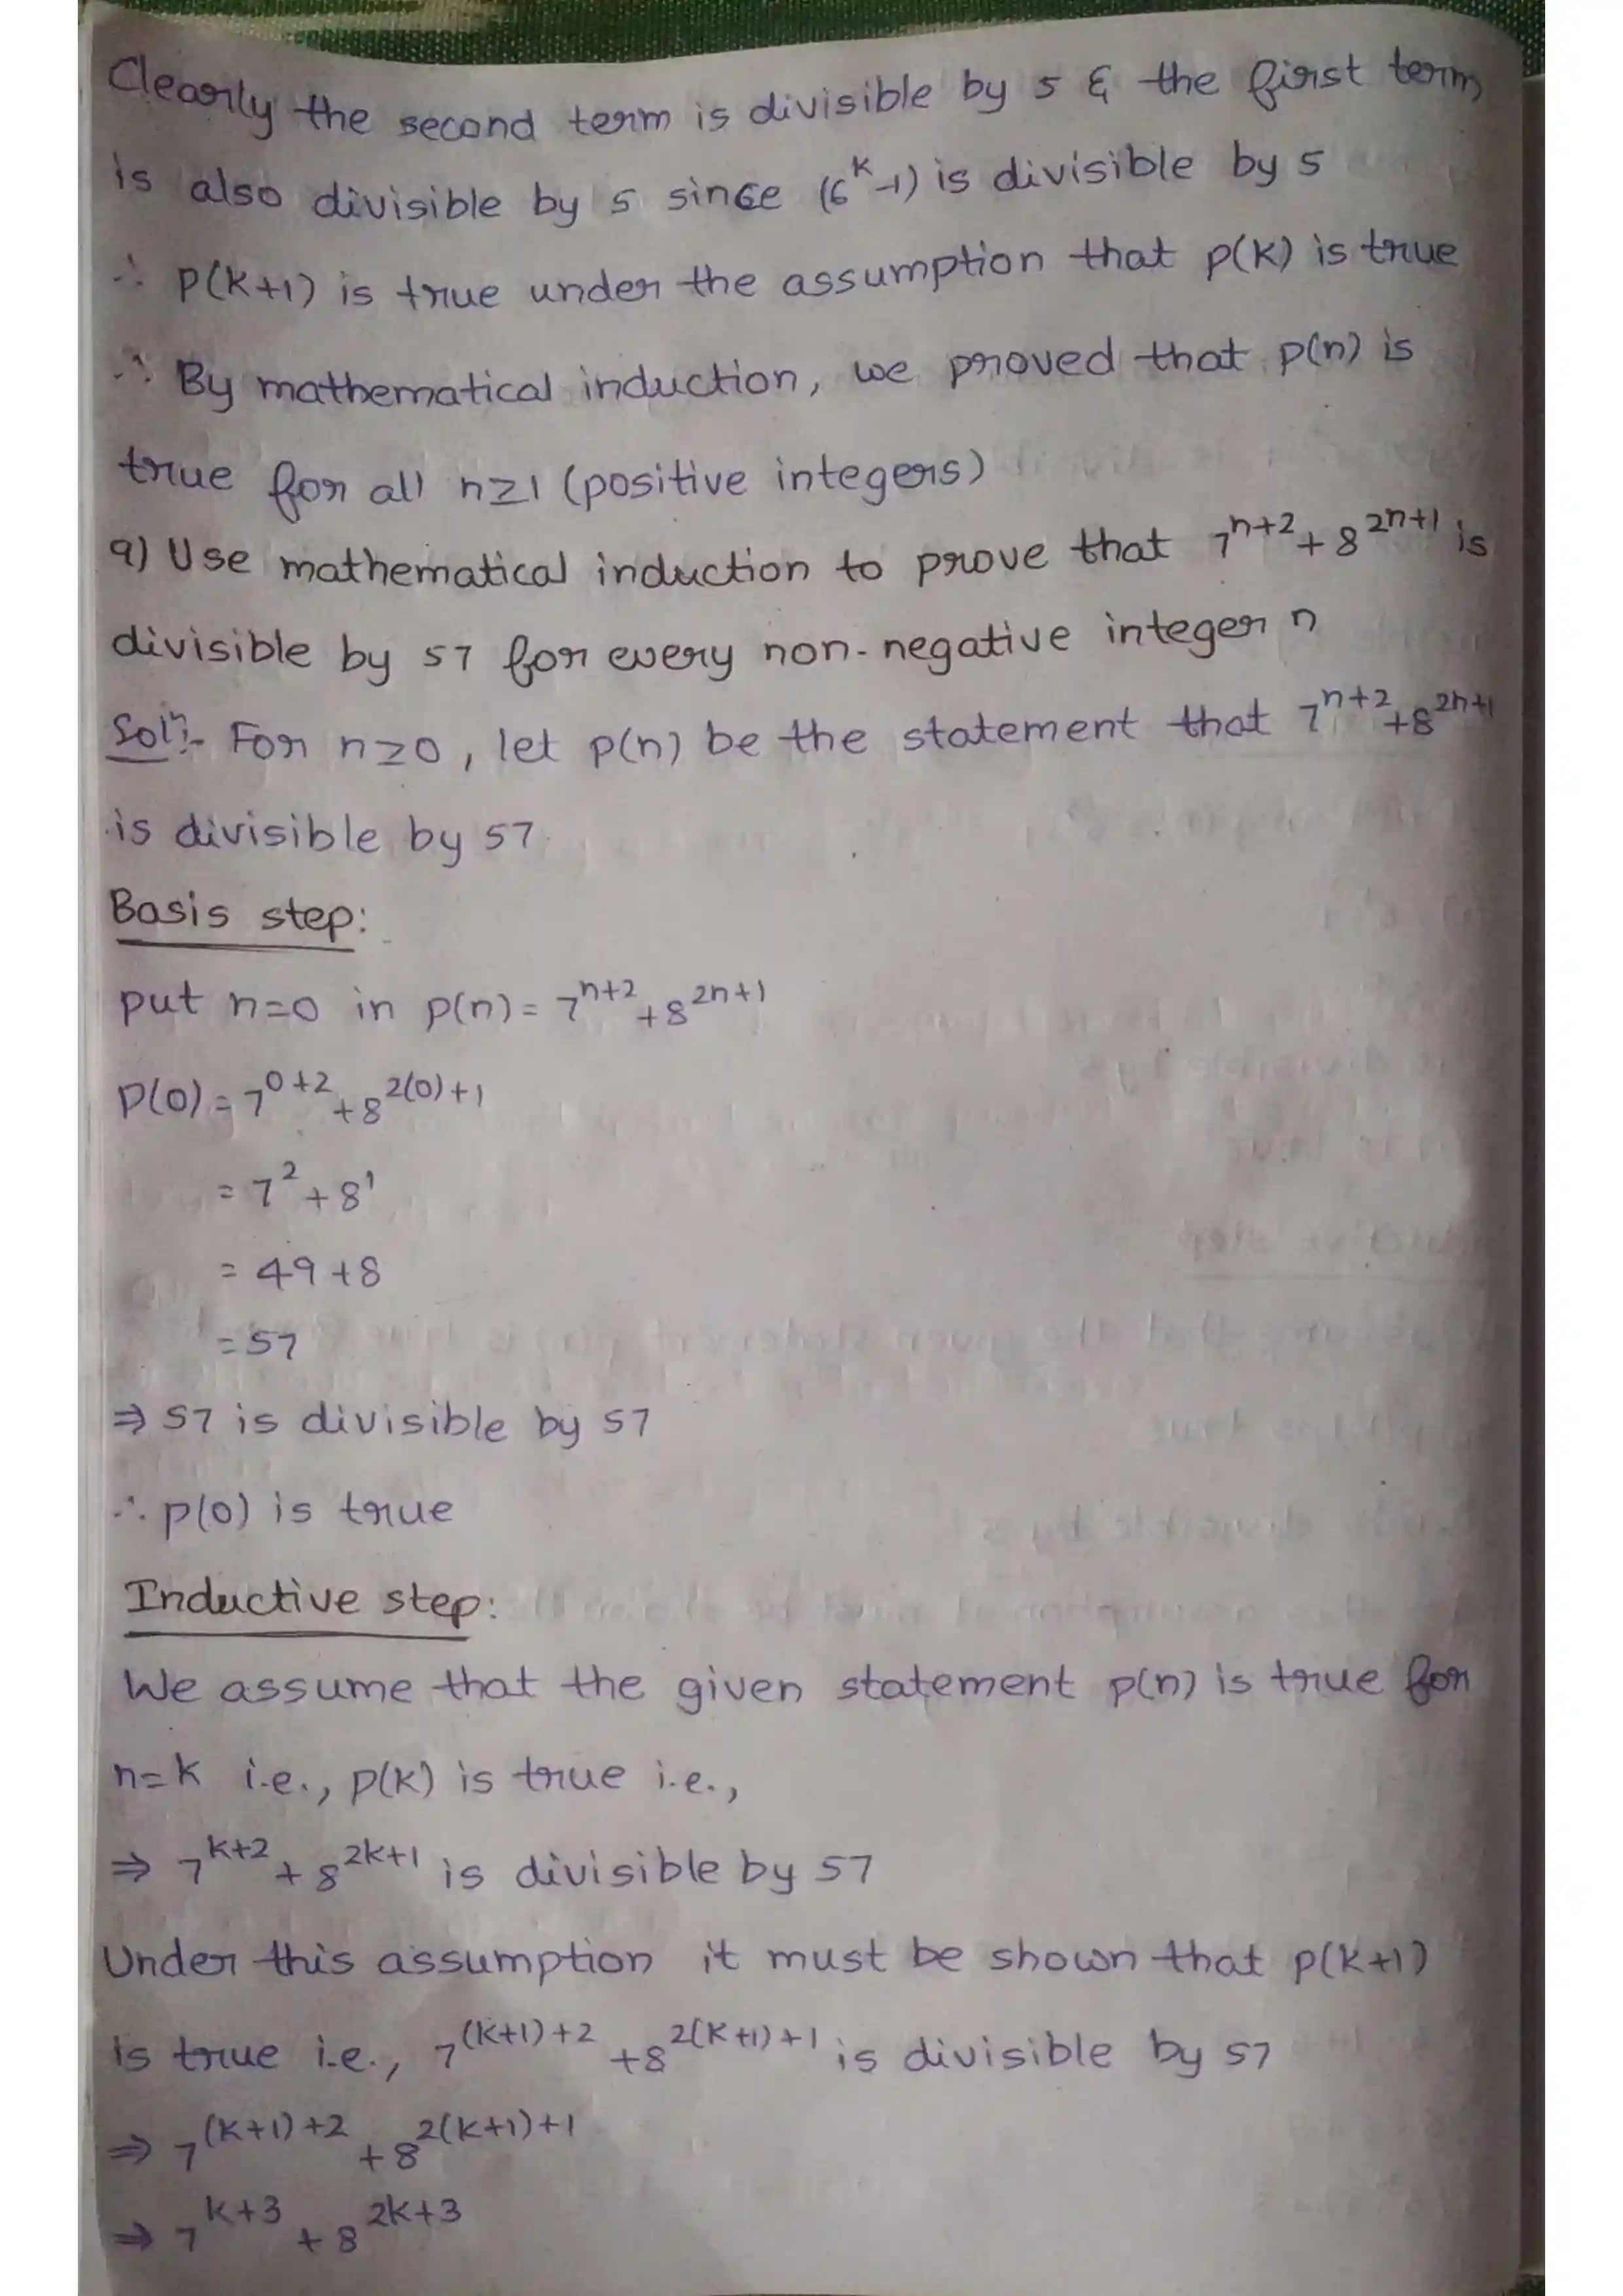 Clearly the second term is divisible by 5 & the first term
is also divisible by 5 since (6^k-1) is divisible by 5
∴ P(K+1) is true under the assumption that p(K) is true
∴ By mathematical induction, we proved that p(n) is
true for all n≥1 (positive integers)
9) Use mathematical induction to prove that 7^{n+2}+8^{2n+1} is
divisible by 57 for every non-negative integer n
Solⁿ:- For n≥0, let p(n) be the statement that 7^{n+2}+8^{2n+1}
is divisible by 57
Basis step:
put n=0 in p(n)= 7^{n+2}+8^{2n+1}
P(0) = 7^{0+2}+8^{2(0)+1}
= 7^2+8^1
= 49+8
= 57
⇒ 57 is divisible by 57
∴ p(0) is true
Inductive step:
We assume that the given statement p(n) is true for
n=k i.e., p(k) is true i.e.,
⇒ 7^{k+2}+8^{2k+1} is divisible by 57
Under this assumption it must be shown that p(k+1)
is true i.e., 7^{(k+1)+2}+8^{2(k+1)+1} is divisible by 57
⇒ 7^{(k+1)+2}+8^{2(k+1)+1}
⇒ 7^{k+3}+8^{2k+3}